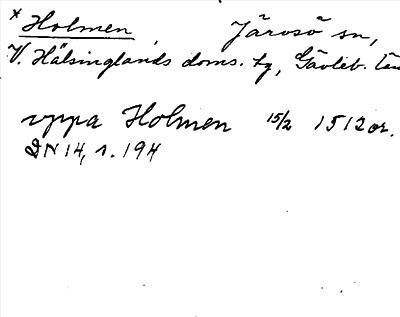 * Holmen, Järvsö sn,
V. Hälsinglands doms. tg, Gävleb. län
uppa Holmen 15/2 1512 or.
DN 14, s. 194